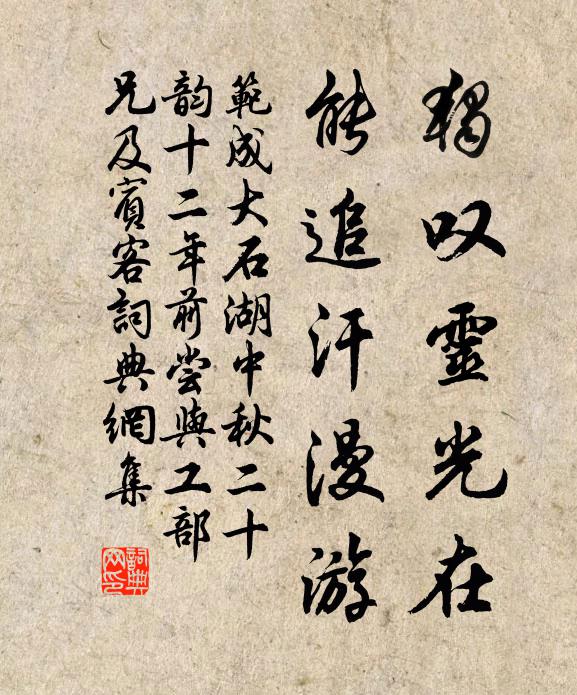 獨叹靈光在
能追汗漫游
範成大石湖中秋二十
韵十二年前嘗與工部
兄及賓客詞典網集